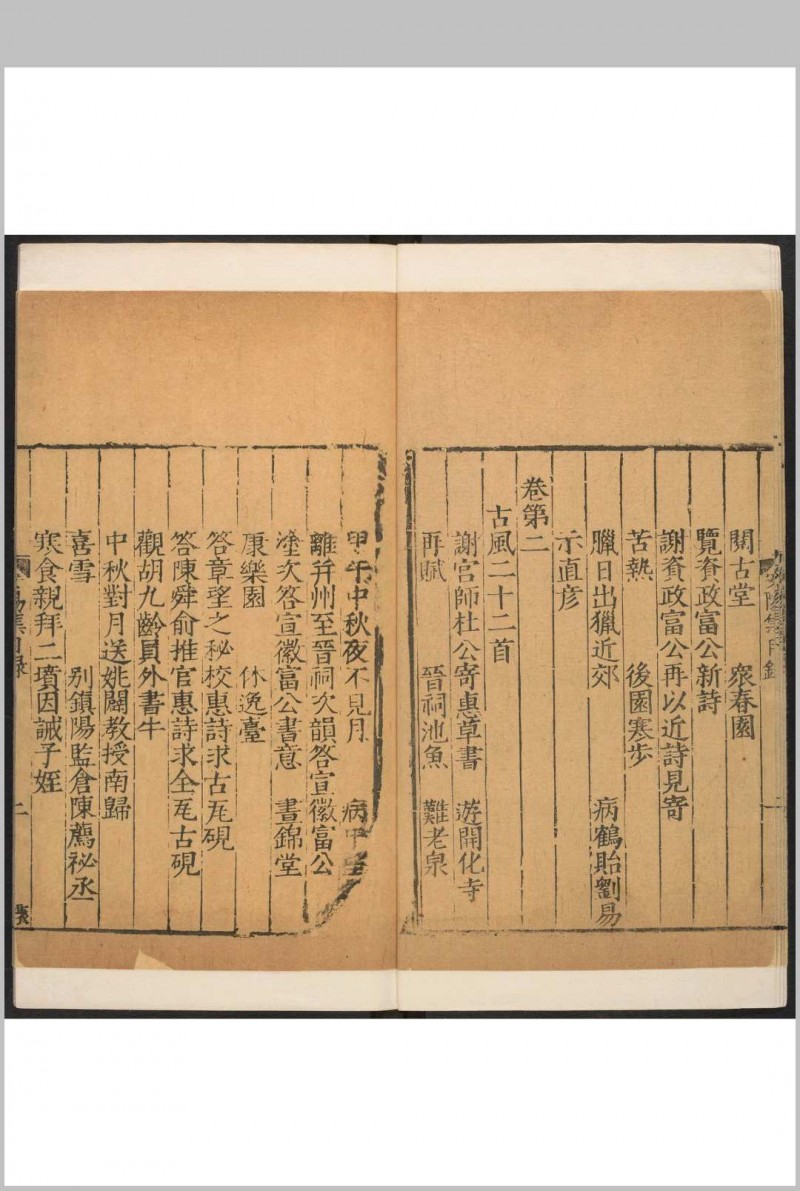 陽集目錄
閱古堂　衆春園
覽資政富公新詩
謝資政富公再以近詩見寄
苦熱　後園寒步
臘日出獵近郊　病鶴貽劉易
示直彦
卷第二
古風二十二首
謝宮師杜公寄惠草書　遊開化寺
再賦　晉祠池魚　難老泉
甲午中秋夜不見月　病中
離并州至晉祠次韻答宣徽富公
塗次答宣徽富公書意　晝錦堂
康樂園　休逸臺
答章望之秘校惠詩求古瓦硯
答陳舜俞推官惠詩求全瓦古硯
觀胡九齡員外畫牛
中秋對月送姚闢教授南歸
喜雪　别鎮陽監倉陳薦祕丞
寒食親拜二墳因誡子姪
陽集目錄　二